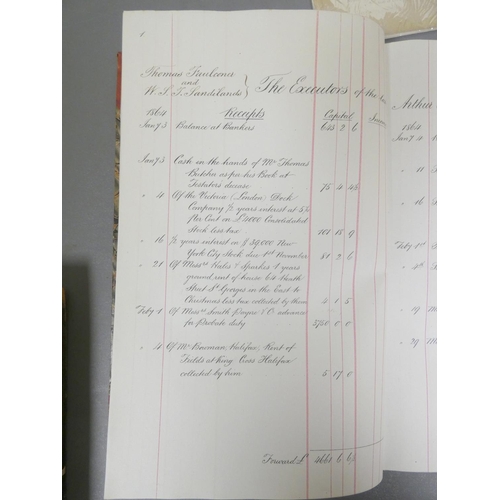 1
Thomas
and
W. S. T. Sandilands } The Executors of the
1864 Receipts Capital
Jany 3 Balance at Bankers 643 2 6
Jany 3 Cash in the hands of Mr Thomas
as per his Book at
Testators decease 75 4 4½
" 4 Of the Victoria (London) Dock
Company ½ years interest at 5%
per Cent on £4000 Consolidated
Stock less tax 101 18 9
" 16 ½ years interest on $ 39,000 New
York City Stock due 1st November 81 2 6
" 21 Of Messrs & Sparkes 1 years
ground rent of house 64 North
Street St Georges in the East to
Christmas less tax collected by them 5 1 5
Feby 1 Of Messrs Smith Payne & Co advance
for Probate duty 3750 0 0
" 4 Of Mr Halifax, Rent of
Fields at King Cross Halifax
collected by him 5 17 0
Forward £ 4661 6 6½
Arthur
1864
Jany 4
" 11
" 16
Feby 1st
" 4th
" 19
" 29